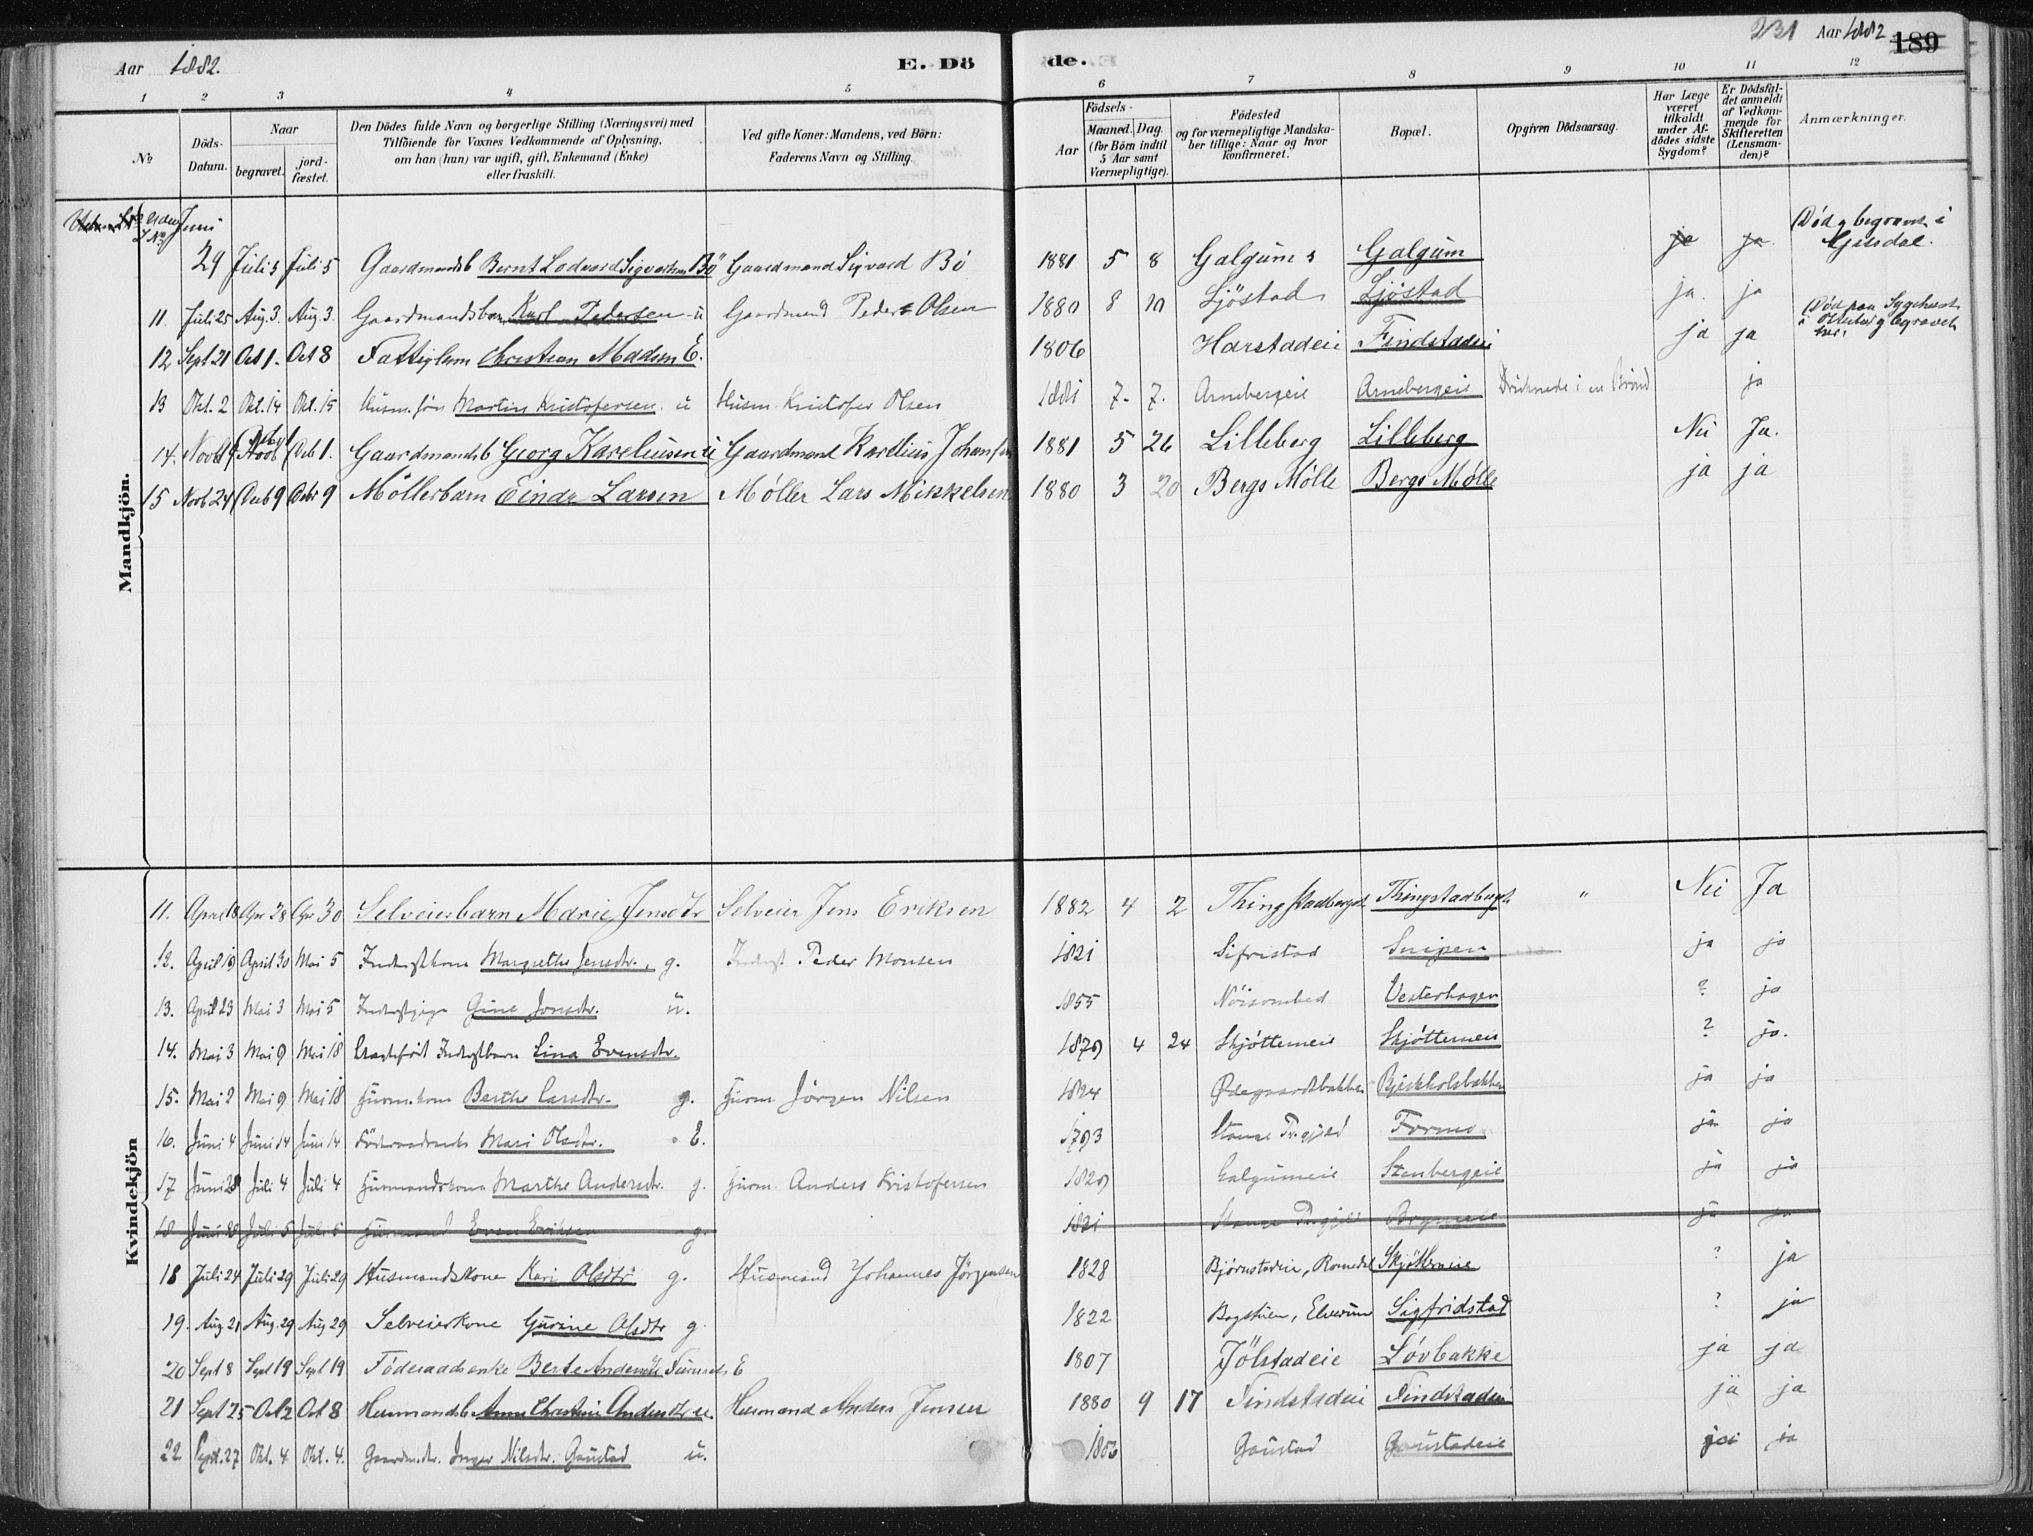 Aar 1882. E. Dö de. 231 Aar 1882 189
1 2 3 4 5 6 7 8 9 10 11 12
No Döds-Datum. Naar begravet. jord-fæstet. Den Dödes fulde Navn og borgerlige Stilling (Næringsvei) med Tilföiende for Voxnes Vedkommende af Oplysning, om han (hun) var ugift, gift, Enkemand (Enke) eller fraskilt. Ved gifte Koner: Mandens, ved Börn: Faderens Navn og Stilling. Födsels- Aar Maaned. Dag. (for Börn indtil 5 Aar samt Værnepligtige). Födested og for værnepligtige Mandskaber tillige: Naar og hvor konfirmeret. Bopæl. Opgiven Dödsaarsag. Har Læge været tilkaldt under Afdödes sidste Sygdom? Er Dödsfaldet anmeldt af Vedkommende for Skifteretten (Lensmanden)? Anmærkninger.
Mandkjön.
Uden No Juni
29 Juli 5 Juli 5 Gaardmandsb Bernt Lodvard Sigvartsen Bö Gaardmand Sigvard Bö 1881 5 8 Galgum Galgum ja ja Död og begravet i Gjesdal.
11. Juli 25 Aug. 3. Aug. 3. Gaardmandsbarn Karl Pedersen u Gaardmand Peder Olsen 1880 8 10 Sjöstad Sjöstad ja ja
12 Sept 21 Oct 1. Oct 8 Fattiglem Christian Madsen E. 1806 Harstadeie Findstadeie ja ja Död paa Sygehuset i og begravet her.
13 Okt. 2 Okt. 14 Okt. 15 Husm. sön Martin Kristofersen. u Husm. Kristofer Olsen 1881 7. 7. Arnebergeie Arnebergeie Druknede i en Brönd ja
14. Novb 19 Decb 1 Decb 1. Gaardmandsb Georg Kareliusen u Gaardmand Karelius Johansen 1881 5 26 Lilleberg Lilleberg Nei Ja.
15 Novb 24 Decb 9 Decbr 9 Möllerbarn Einar Larsen Möller Lars Mikkelsen 1880 3 20 Bergs Mölle Bergs Mölle ja ja
Kvindekjön
11. April 18 Apr 28 Apr 30 Selveierbarn Marie Jensdtr Selveier Jens Eriksen 1882 4 2 Thingstadberget Thingstadberget " Nei Ja
12. April 19 April 30 Mai 5 Inderstkone Margrethe Jensdtr., g. Inderst Peder Monsen 1821 Sifristad Snipen ja ja
13. April 23 Mai 3 Mai 5 Inderstpige Gine Jonsdtr. u. 1855 Nöisomhed Vesterhagen ? ja
14. Mai 3 Mai 9 Mai 18 Uægtefödt Inderstbarn Lina Evensdtr. 1879 4 24 Skjötterneie Skjötterneie ? ja.
15. Mai 2 Mai 9 Mai 18 Husm.kone Berthe Larsdtr. g. Husm Jörgen Nilsen 1824 Ødegaardsbakken Bjerkholsbakken ja ja
16. Juni 4 Juni 14 Juni 14 Föderaadsenke Mari Olsdtr. E. 1793 Stange Prgjeld Formo ja ja
17 Juni 28 Juli 4 Juli 4 Husmandskone Marthe Andersdtr. g. Husm. Anders Kristofersen 1829 Galgumeie Stenbergeie ja ja
18 Juni 28 Juli 5 Juli 5 Husmand Even Eriksen g. 1821 Stange Prgjeld ja ja
18 Juli 24 Juli 29 Juli 29 Husmandskone Kari Olsdtr g. Husmand Johannes Jörgensen 1828 Björnstadeie, Romedal Skjötterneie ? ja
19. Aug 21 Aug. 29 Aug 29 Selveierkone Gurine Olsdtr g. 1822 Bagstuen, Elverum Sigfridstad ? ja
20 Sept 8 Sept 19 Sept 19 Föderaadsenke Berte Andersdtr E 1807 Jölstadeie Lövbakke ja ja
21 Sept 25 Oct 2 Oct 8 Husmandsb Anne Christine Andersdtr u. Husmand Anders Jensen 1880 9 17 Findstadeie Findstadeie ja ja
22 Sept. 27 Okt. 4 Okt. 4. Gaardm.dtr. Inger Nilsdtr. Gaustad u. 1806 Gaustad Gaustadeie ja